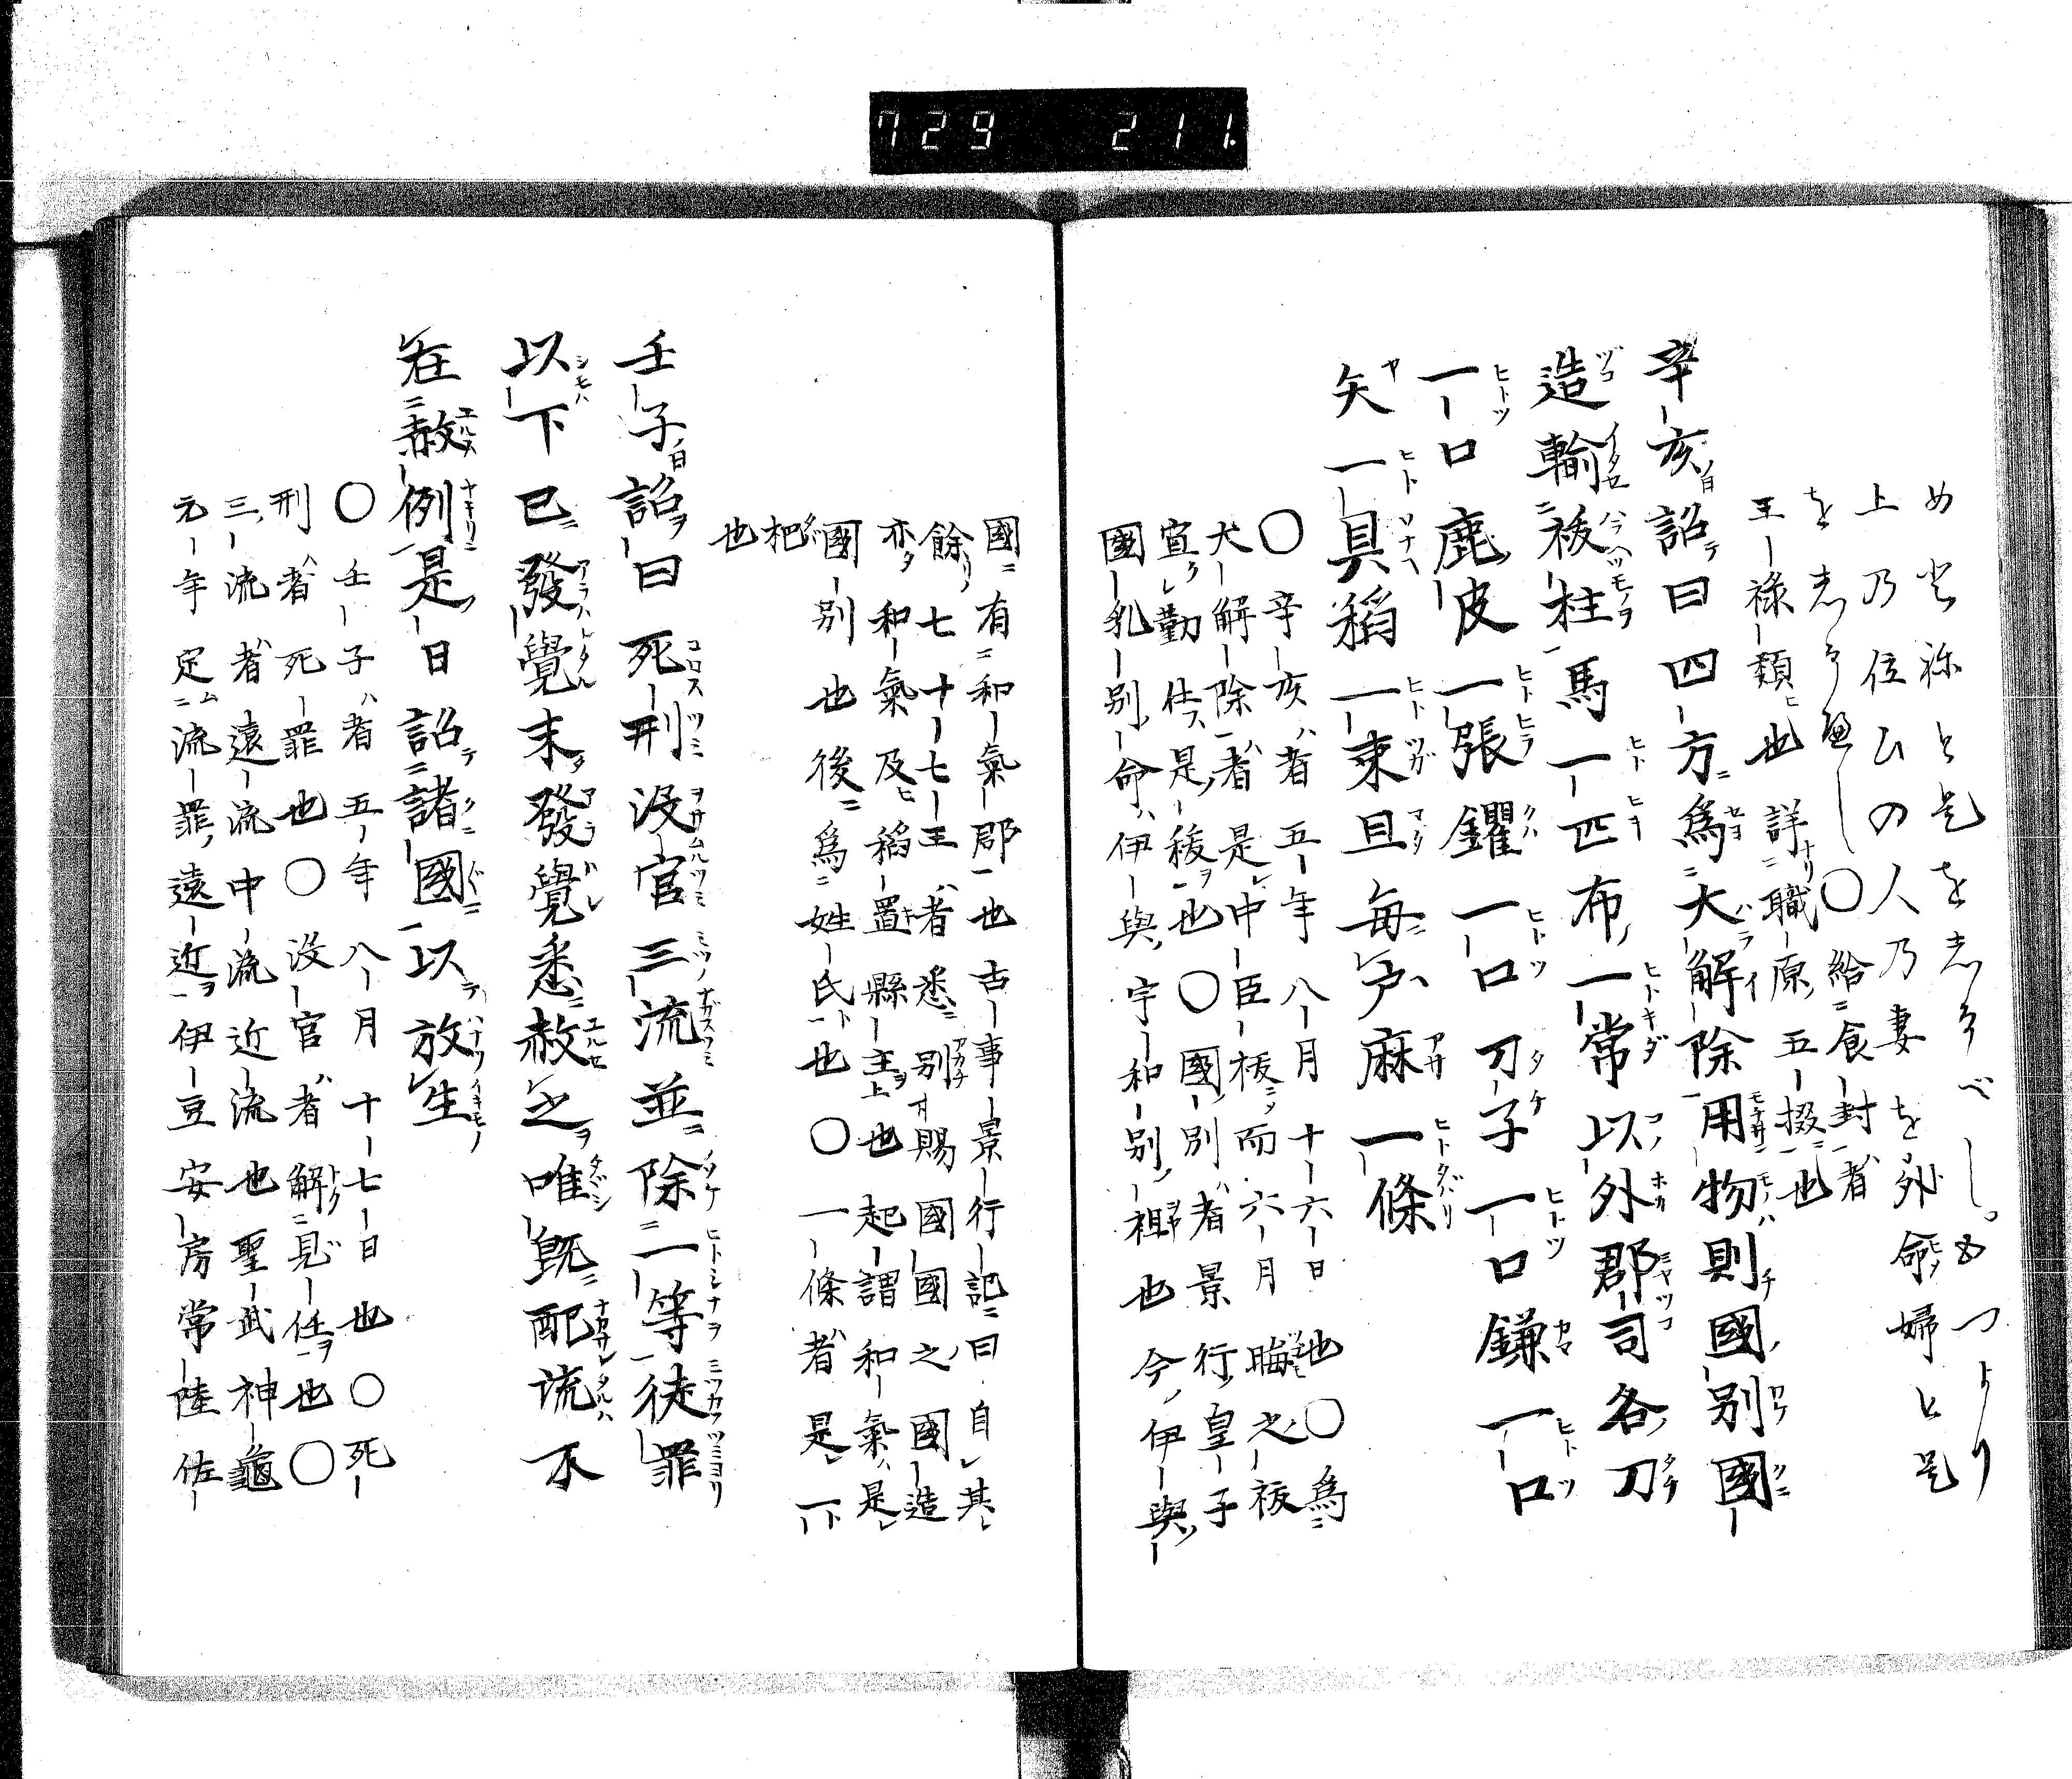 729 211.
め登祢と是を志るべし
上乃位ひの人乃妻を外命婦と是
を志る
王祿類也詳職原五掇也
○給食封者
辛亥詔曰四方爲大解除用物則國別國
造輸祓柱馬一匹布一常以外郡司各刀
一口鹿皮一張钁一口刀子一口鎌一口
矢一具稻一束且每戶麻一條
○辛亥者五年八月十六日也○爲
大解除者是中臣祓而六月晦之祓
宣勤仕是祓也○國別者景行皇子
國乳別命伊與宇和別祖也今伊與
國有和氣郡也古事景行記曰自其
餘七十七王者悉別賜國國之國造
亦和氣及稻置縣主也起謂和氣是
國別也後爲姓氏也○一條者是一
把也
壬子詔曰死刑沒官三流並除一等徒罪
以下已發覺未發覺悉赦之唯既配流不
在赦例是日詔諸國以放生
○壬子者五年八月十七日也○死
刑者死罪也○沒官者解見任也○
三流者遠流中流近流也聖武神龜
元年定流罪遠近伊豆安房常陸佐